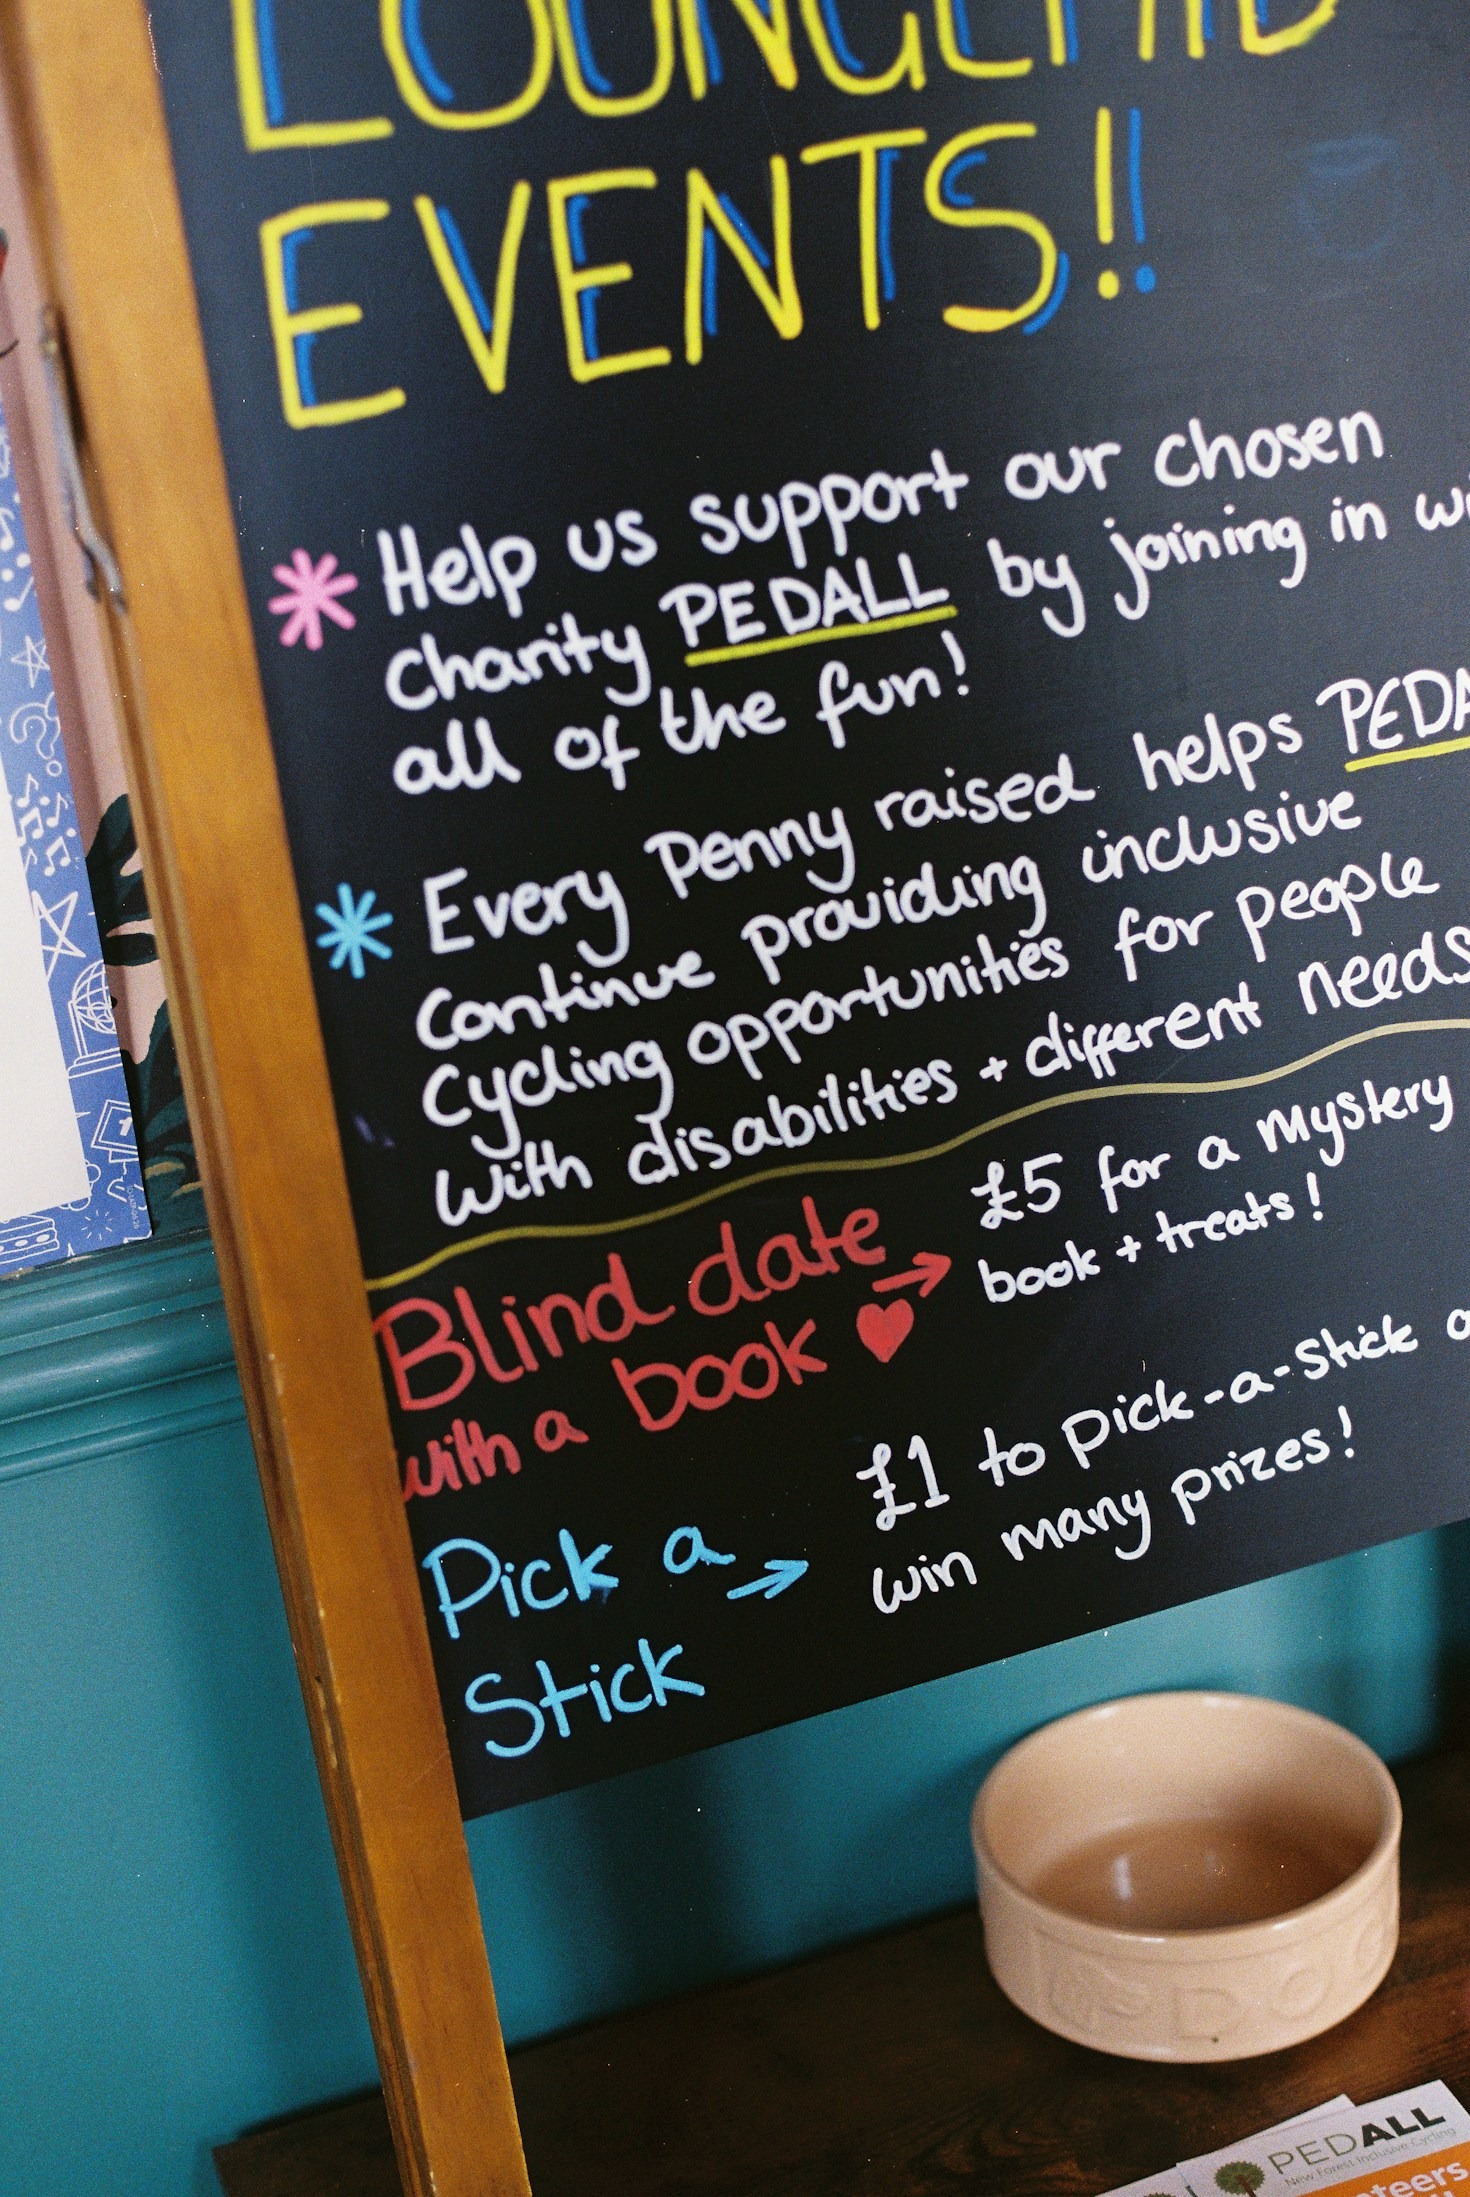 EVENTS!!
Help us support our chosen
charity PEDALL by joining in
all of the fun!
Every penny raised helps
continue providing inclusive
cycling opportunities for people
with disabilities + different needs
Blind date
with a book
£5 for a mystery
book + treats!
Pick a
Stick
£1 to pick-a-stick
win many prizes!
PEDALL
New Forest Inclusive Cycling